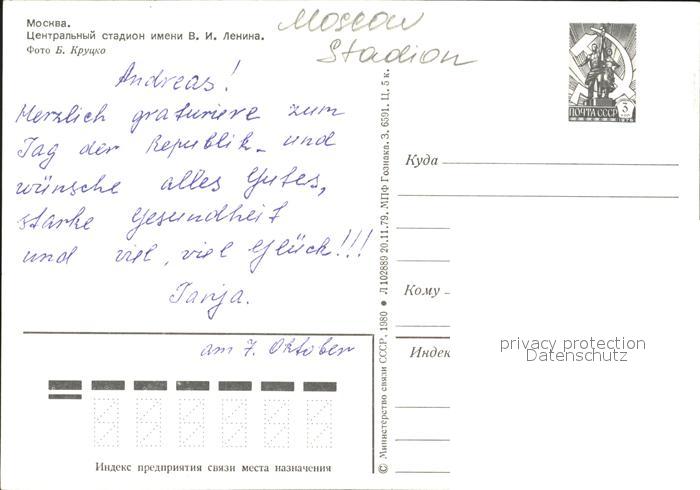 Москва.
Центральный стадион имени В. И. Ленина.
Фото Б. Круцко
Moscow
Stadion
Andreas!
Herzlich graturiere zum
Tag der Republik und
wünsche alles Gutes,
starke Gesundheit
und viel, viel Glück!!!
Tanja.
am 7. Oktober
Индекс предприятия связи места назначения
© Министерство связи СССР, 1980 ● Л 102889 20.11.79, МПФ Гознака. З. 6591. Ц. 5 к.
3
КОП
ПОЧТА СССР
1976
Куда
Кому
Индек
privacy protection
Datenschutz